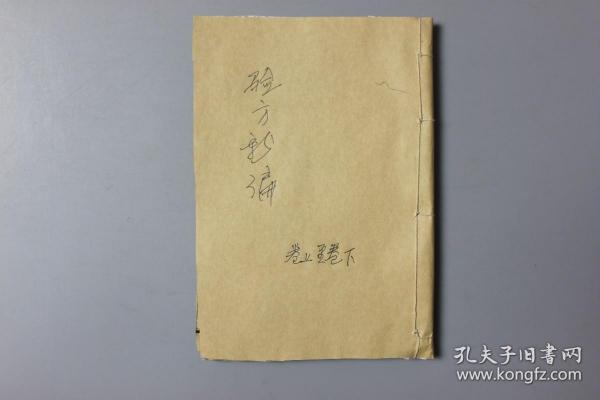 验方新编
卷上至卷下
孔夫子旧書网
www.kongfz.com